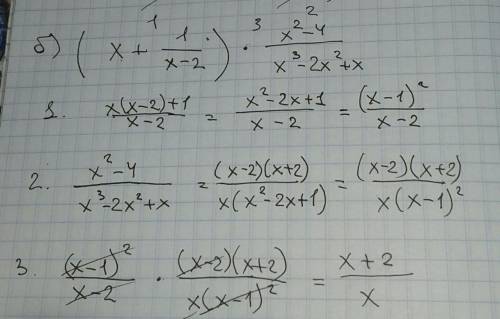 б) (x + 1/(x-2)) · (x²-4)/(x³-2x²+x)
1. (x(x-2)+1)/(x-2) = (x²-2x+1)/(x-2) = (x-1)²/(x-2)
2. (x²-4)/(x³-2x²+x) = ((x-2)(x+2))/(x(x²-2x+1)) = ((x-2)(x+2))/(x(x-1)²)
3. (x-1)²/(x-2) · ((x-2)(x+2))/(x(x-1)²) = (x+2)/x